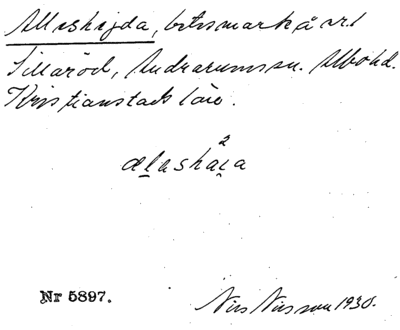 Alleshejda, betesmark å nr 1
Sillaröd, Andrarums sn. Albo hd.
Kristianstads län.
Nr 5897.
Nils Nilsson 1930.